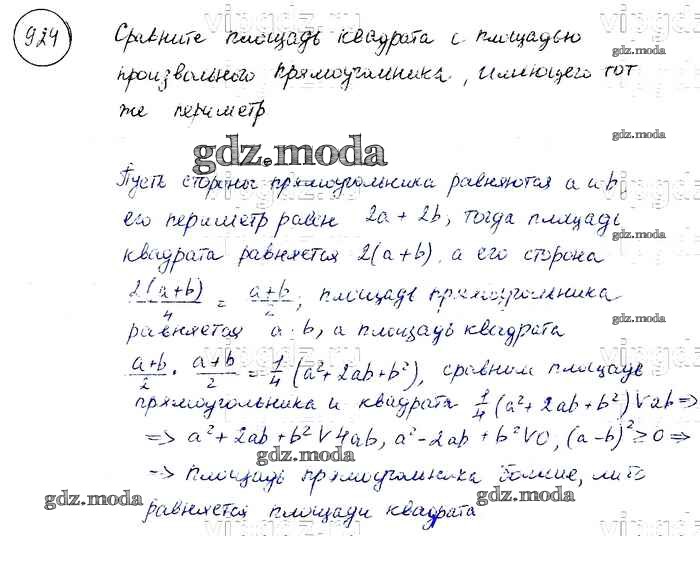 924
Сравните площадь квадрата с площадью
произвольного прямоугольника, имеющего тот
же периметр
Пусть стороны прямоугольника равняются a и b,
его периметр равен 2a + 2b, тогда площадь
квадрата равняется 2(a+b), а его сторона
2(a+b)/4 = a+b/2; площадь прямоугольника
равняется a·b, а площадь квадрата
a+b/2 · a+b/2 = 1/4 (a²+2ab+b²), сравним площадь
прямоугольника и квадрата 1/4 (a²+2ab+b²) V ab =>
=> a²+2ab+b² V 4ab, a²-2ab+b² V 0, (a-b)² ≥ 0 =>
-> площадь прямоугольника больше, либо
равняется площади квадрата
gdz.moda
gdz.moda
gdz.moda
gdz.moda
gdz.moda
gdz.moda
gdz.moda
gdz.moda
gdz.moda